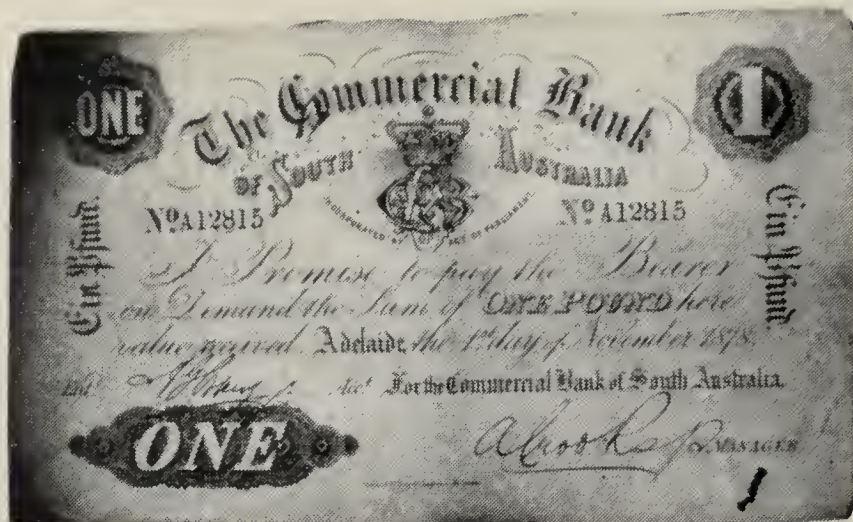 ONE
1
The Commercial Bank
OF SOUTH AUSTRALIA
INCORPORATED BY ACT OF PARLIAMENT
Nº A12815
Nº A12815
Ein Pfund.
Ein Pfund.
I Promise to pay the Bearer
on Demand the Sum of ONE POUND here
value received Adelaide the 1st day of November 1878.
For the Commercial Bank of South Australia.
ONE
A Crooks
MANAGER